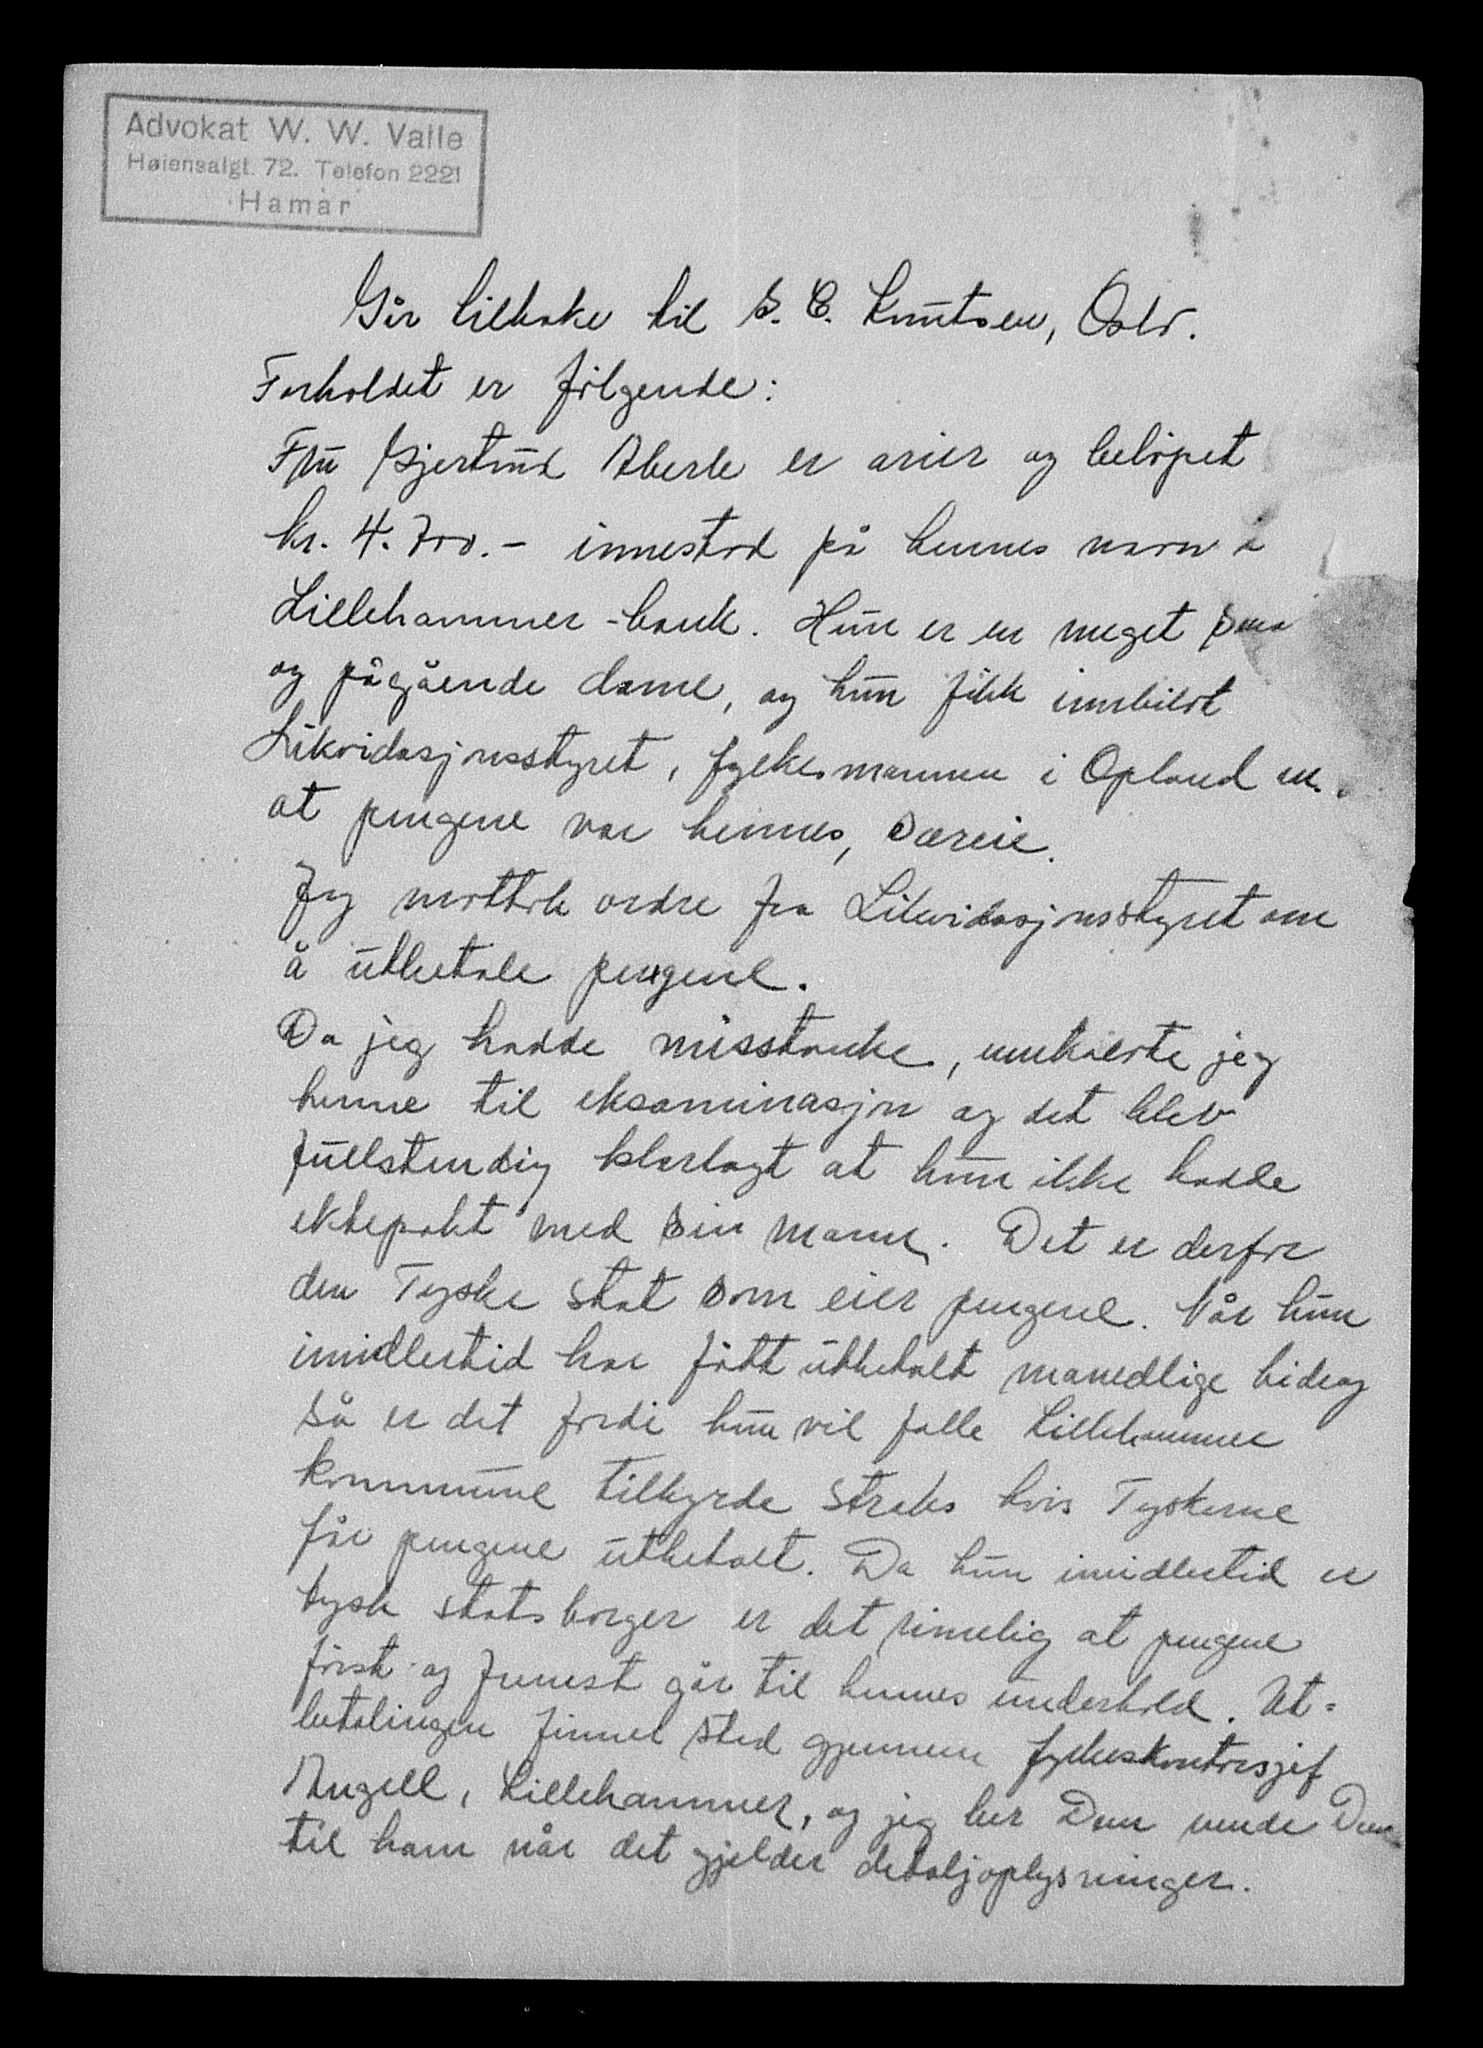 Advokat W. W. Valle
Høiensalgt. 72. Telefon 2221
Hamar
Går tilbake til S. C. Knutsen, Oslo.
Forholdet er følgende:
Fru Gjertrud Aberle er arier og beløpet
kr. 4.700.- innestod på hennes navn i
Lillehammer-bank. Hun er en meget
og pågående dame, og hun fikk innbildt
Likvidasjonsstyret, fylkesmannen i Opland m.
at pengene var hennes, særeie.
Jeg mottok ordre fra Likvidasjonsstyret om
å utbetale pengene.
Da jeg hadde misstanke, innkalte jeg
henne til eksaminasjon og det blev
fullstendig klarlagt at hun ikke hadde
ektepakt med sin mann. Det er derfor
den Tyske stat som eier pengene. Når hun
imidlertid har fått utbetalt månedlige bidrag
så er det fordi hun vil falle Lillehammer
kommune tilbyrde straks hvis Tyskerne
får pengene utbetalt. Da hun imidlertid er
tysk statsborger er det rimelig at pengene
først og fremst går til hennes underhold. Ut-
betalingen finner sted gjennem fylkeskontorsjef
Lillehammer, og jeg ber Dem vende Dem
til ham når det gjelder detaljoplysninger.